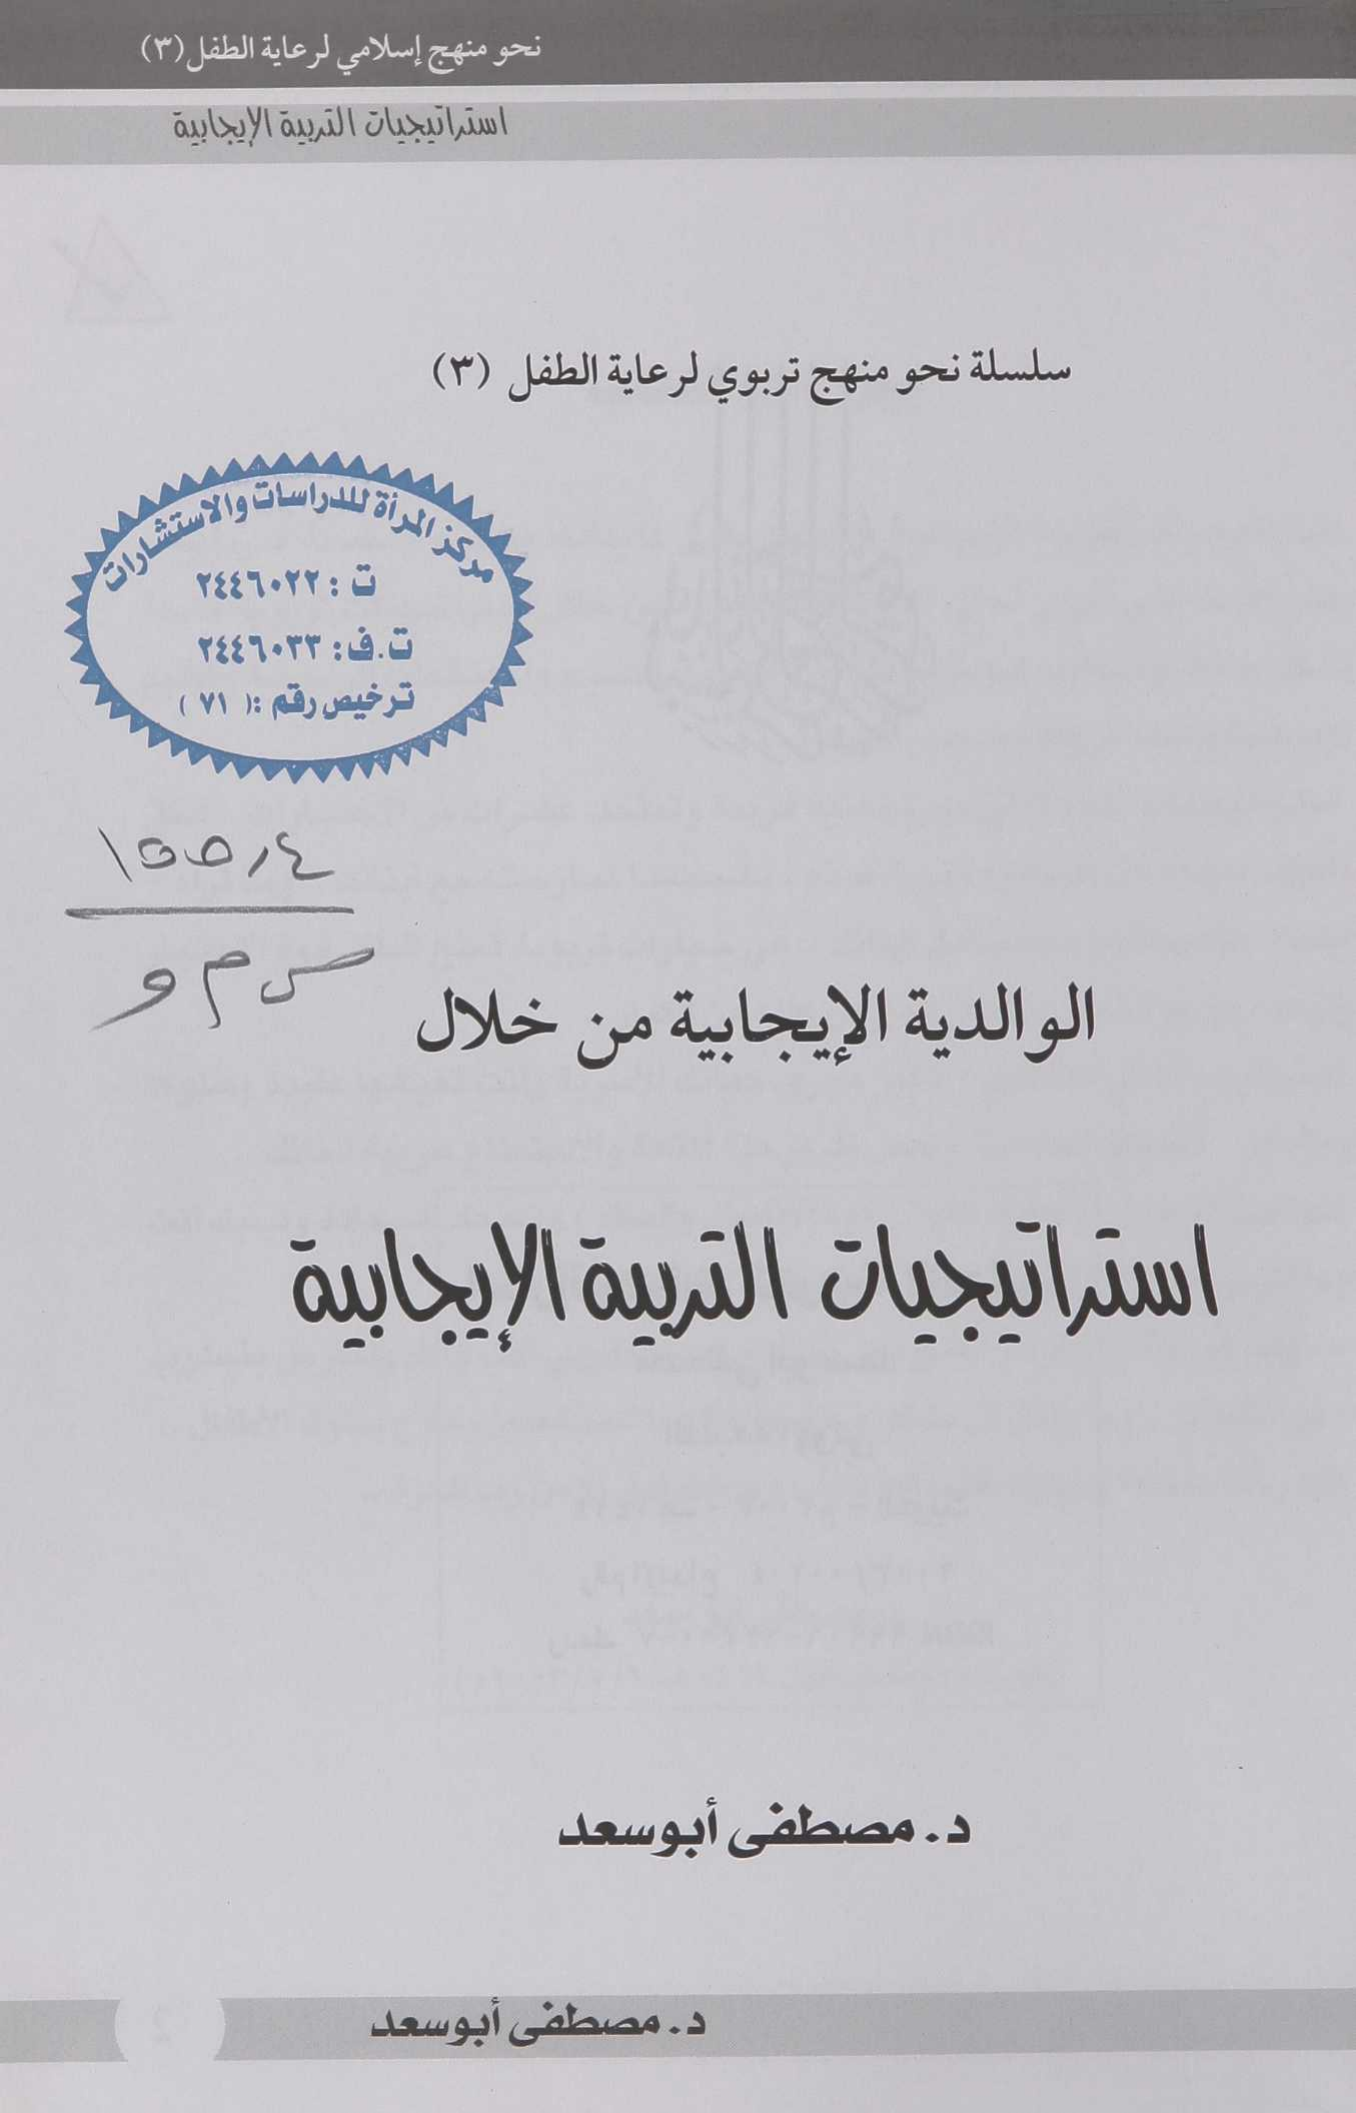 نحو منهج إسلامي لرعاية الطفل (٣)
استراتيجيات التربية الإيجابية
سلسلة نحو منهج تربوي لرعاية الطفل (٣)
مركز المرأة للدراسات والاستشارات
ت : ٢٤٤٦٠٢٢
ت.ف: ٢٤٤٦٠٣٣
ترخيص رقم :( ٧١ )
الوالدية الإيجابية من خلال
استراتيجيات التربية الإيجابية
د. مصطفى أبوسعد
د. مصطفى أبوسعد